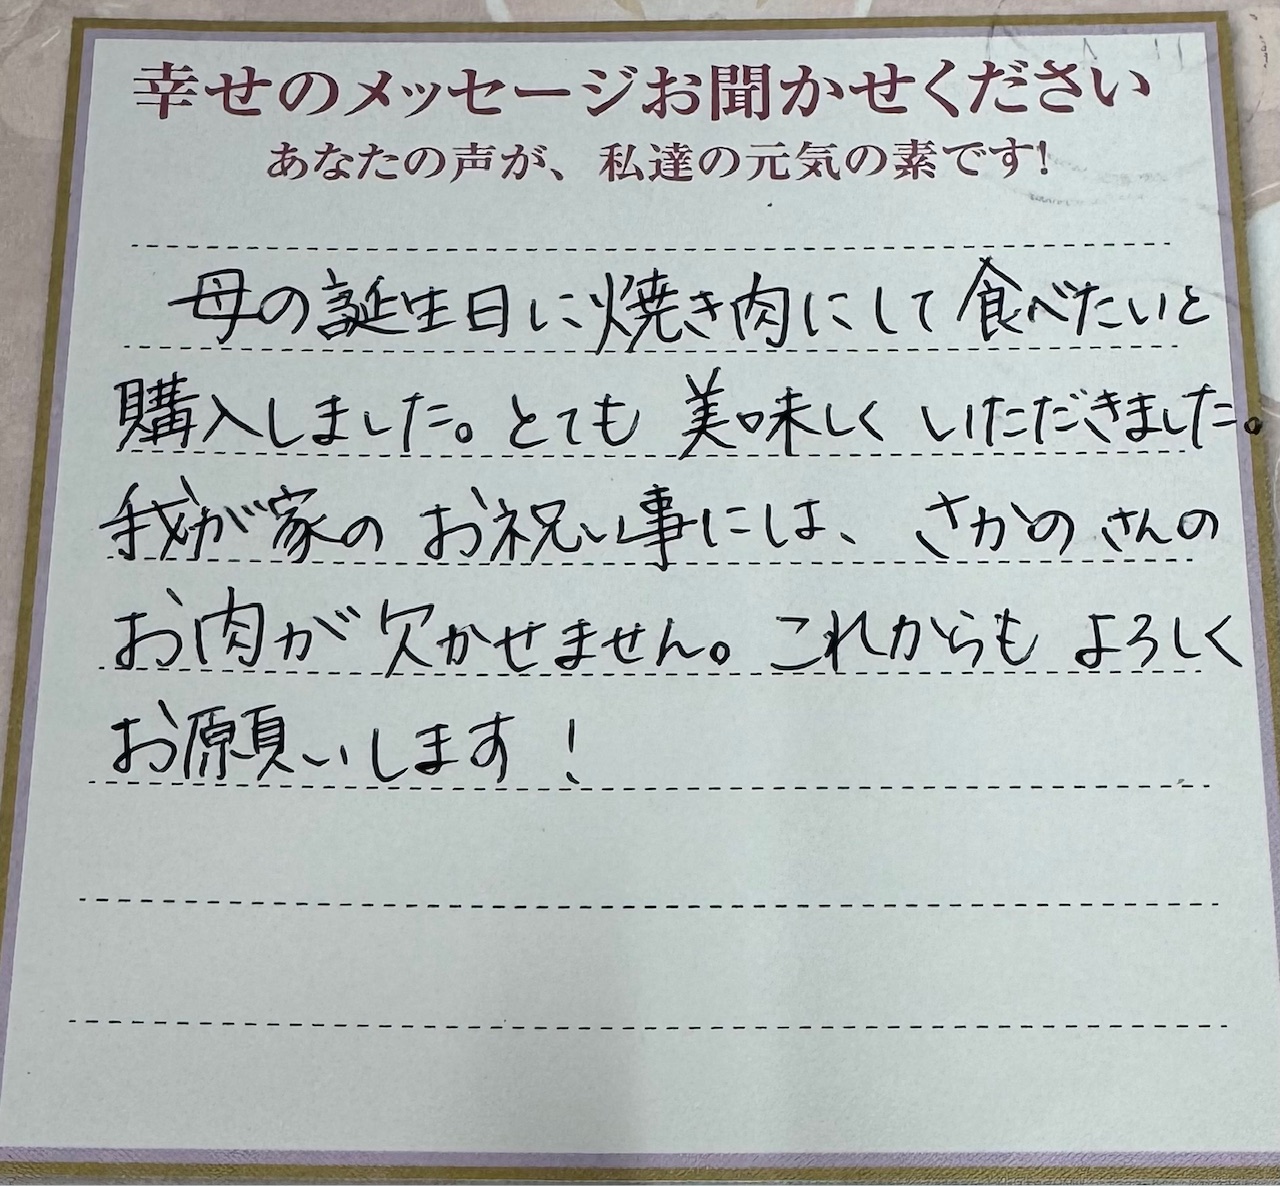 幸せのメッセージお聞かせください
あなたの声が、私達の元気の素です!
母の誕生日に焼き肉にして食べたいと
購入しました。とても美味しくいただきました。
我が家のお祝い事には、さかのさんの
お肉が欠かせません。これからもよろしく
お願いします!